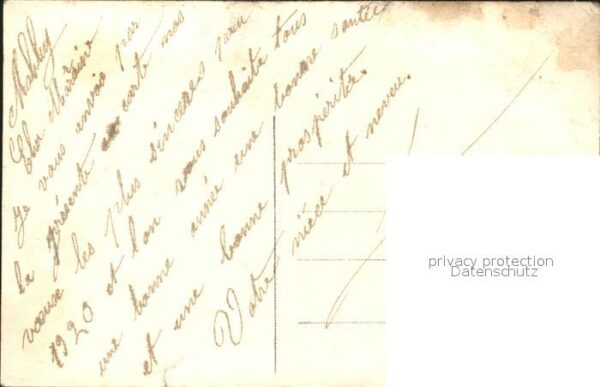 Mabbuy
Cher Marraine
Je vous envoie par
la présente carte mes
vœux les plus sincères pour
1920 et l'on vous souhaite tous
une bonne année une bonne santée
et une bonne prospéritée.
Votre nièce et neveu.
privacy protection
Datenschutz